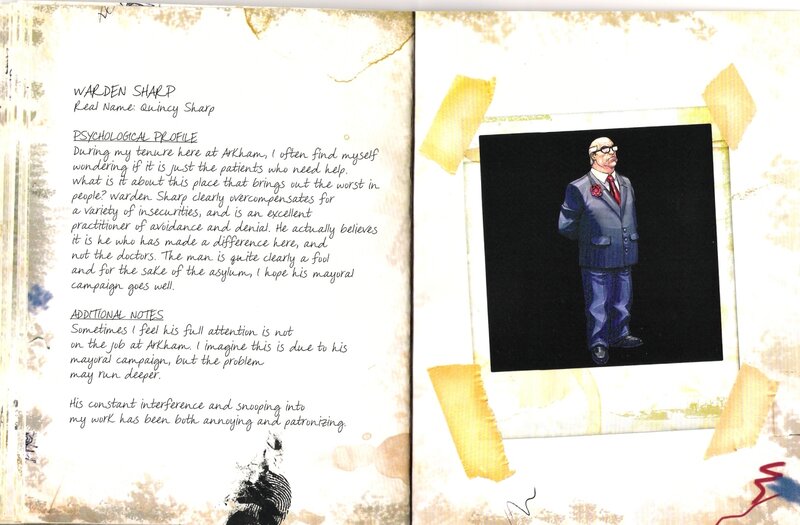 WARDEN SHARP
Real Name: Quincy Sharp
PSYCHOLOGICAL PROFILE
During my tenure here at Arkham, I often find myself
wondering if it is just the patients who need help.
What is it about this place that brings out the worst in
people? Warden Sharp clearly overcompensates for
a variety of insecurities, and is an excellent
practitioner of avoidance and denial. He actually believes
it is he who has made a difference here, and
not the doctors. The man is quite clearly a fool
and for the sake of the asylum, I hope his mayoral
campaign goes well.
ADDITIONAL NOTES
Sometimes I feel his full attention is not
on the job at Arkham. I imagine this is due to his
mayoral campaign, but the problem
may run deeper.
His constant interference and snooping into
my work has been both annoying and patronizing.